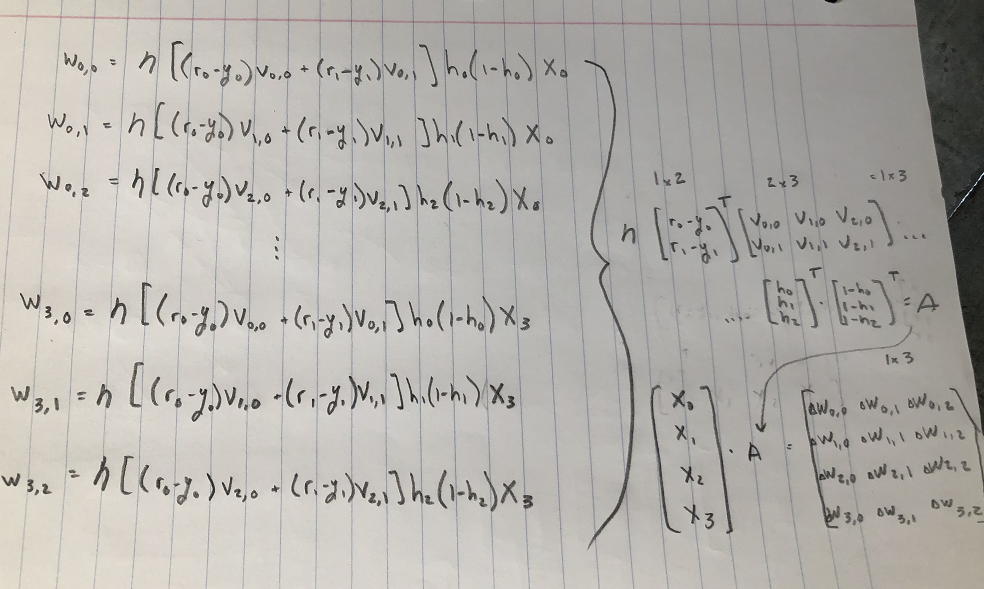 w0,0 = n [(r0-y0)v0,0 + (r1-y1)v0,1] h0(1-h0) x0
w0,1 = n [(r0-y0)v1,0 + (r1-y1)v1,1] h1(1-h1) x0
w0,2 = n [(r0-y0)v2,0 + (r1-y1)v2,1] h2(1-h2) x0
⋮
w3,0 = n [(r0-y0)v0,0 + (r1-y1)v0,1] h0(1-h0) x3
w3,1 = n [(r0-y0)v1,0 + (r1-y1)v1,1] h1(1-h1) x3
w3,2 = n [(r0-y0)v2,0 + (r1-y1)v2,1] h2(1-h2) x3
1x2 2x3 =1x3
n [r0-y0 r1-y1]T [v0,0 v1,0 v2,0
v0,1 v1,1 v2,1] ...
.... [h0 h1 h2]T · [1-h0 1-h1 1-h2]T = A
1x3
[x0 x1 x2 x3] · A = [Δw0,0 Δw0,1 Δw0,2
Δw1,0 Δw1,1 Δw1,2
Δw2,0 Δw2,1 Δw2,2
Δw3,0 Δw3,1 Δw3,2]